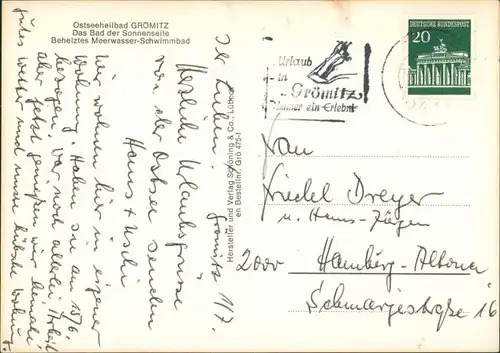 Ostseeheilbad GRÖMITZ
Das Bad der Sonnenseite
Beheiztes Meerwasser-Schwimmbad
Grömitz 1/7.
Ihr Lieben!
Herzliche Urlaubsgrüsse
von der Ostsee senden
Hans + Uschi
Wir wohnen hier in eigener
Wohnung. Haben sie am 15/6.
bezogen, war noch allerlei Arbeit
aber jetzt genießen wir
Gutes Wetter und unsere hübsche Wohnung.
Hersteller und Verlag Schöning & Co., Lübeck
Bestellnr. Grö 475
Urlaub
in
Grömitz
immer ein Erlebnis
DEUTSCHE BUNDESPOST
20
Frau
Friedel Dreyer
u. Hans-Jürgen
2000 Hamburg-Altona
Schmarjestraße 16